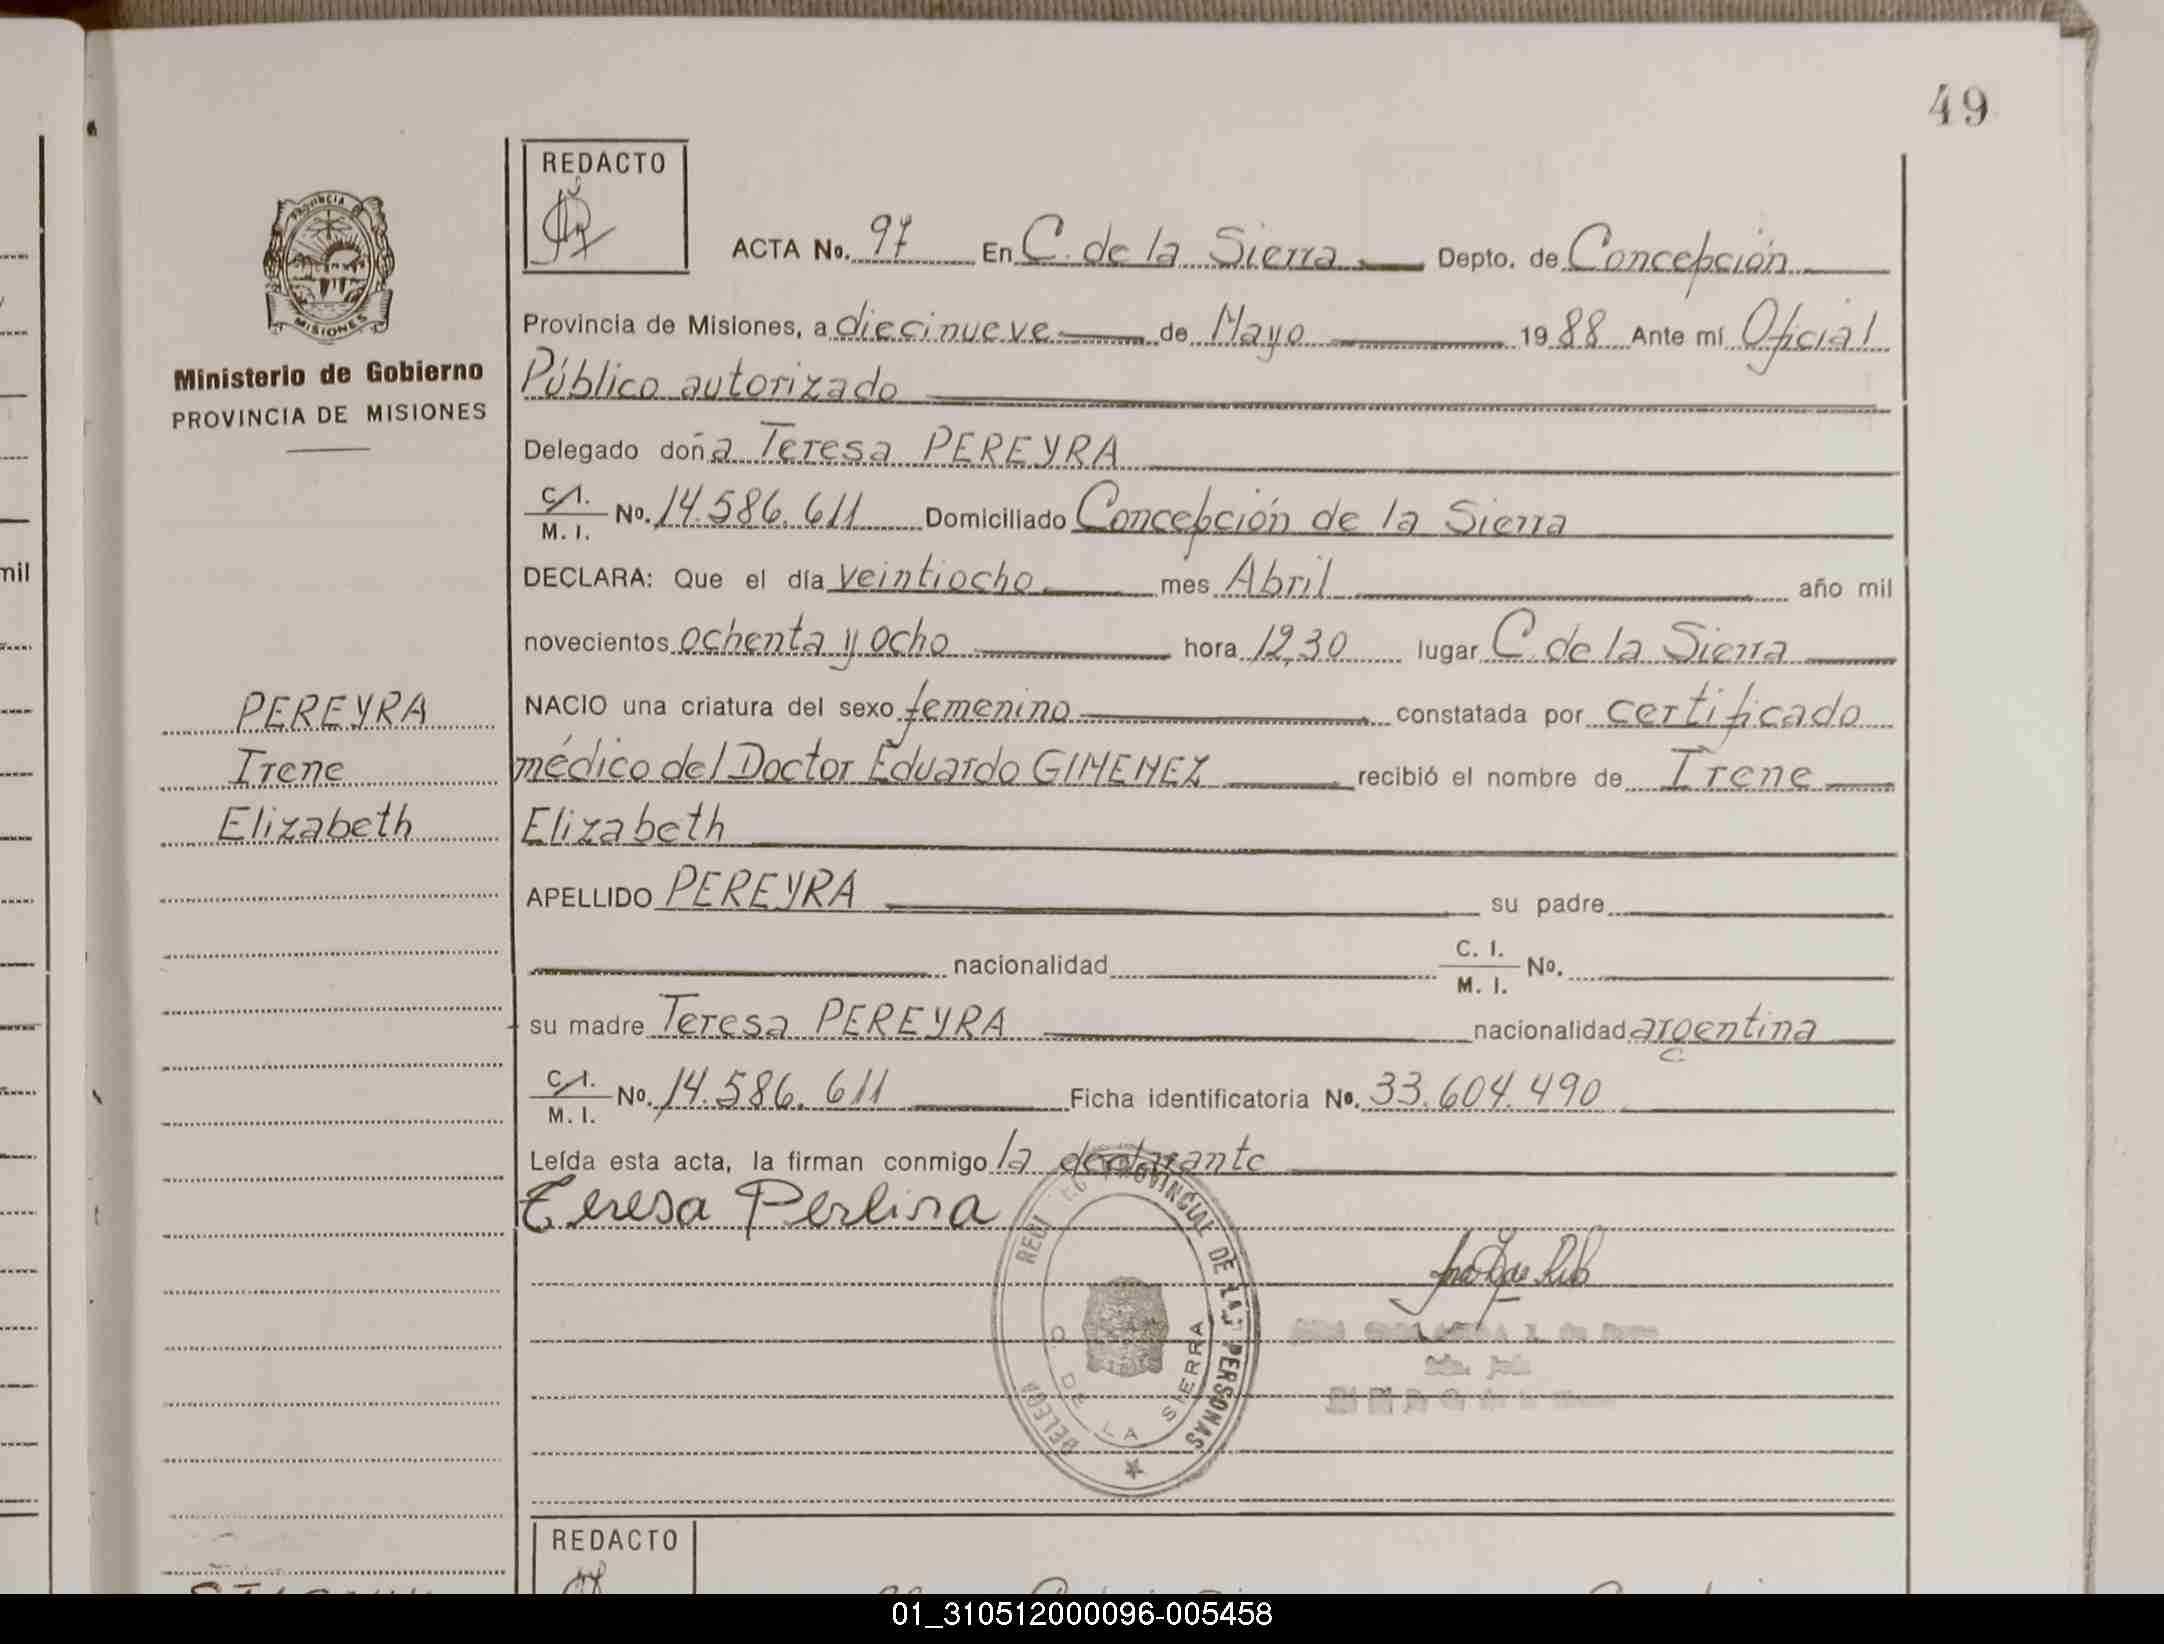 49
REDACTO
PROVINCIA DE
MISIONES
Ministerio de Gobierno
PROVINCIA DE MISIONES
ACTA No. 97 En C. de la Sierra Depto. de Concepción
Provincia de Misiones, a diecinueve de Mayo 1988 Ante mí Oficial
Público autorizado
Delegado doña Teresa PEREYRA
C.I. / M. I. No. 14.586.611 Domiciliado Concepción de la Sierra
DECLARA: Que el día veintiocho mes Abril año mil
novecientos ochenta y ocho hora 12,30 lugar C. de la Sierra
NACIO una criatura del sexo femenino constatada por certificado
médico del Doctor Eduardo GIMENEZ recibió el nombre de Irene
Elizabeth
APELLIDO PEREYRA su padre
nacionalidad C. I. / M. I. No.
su madre Teresa PEREYRA nacionalidad argentina
C.I. / M. I. No. 14.586.611 Ficha identificatoria No. 33.604.490
Leída esta acta, la firman conmigo la declarante
PEREYRA
Irene
Elizabeth
mil
Teresa
PROVINCIAL DE LAS PERSONAS
DE LA SIERRA
REDACTO
01_310512000096-005458